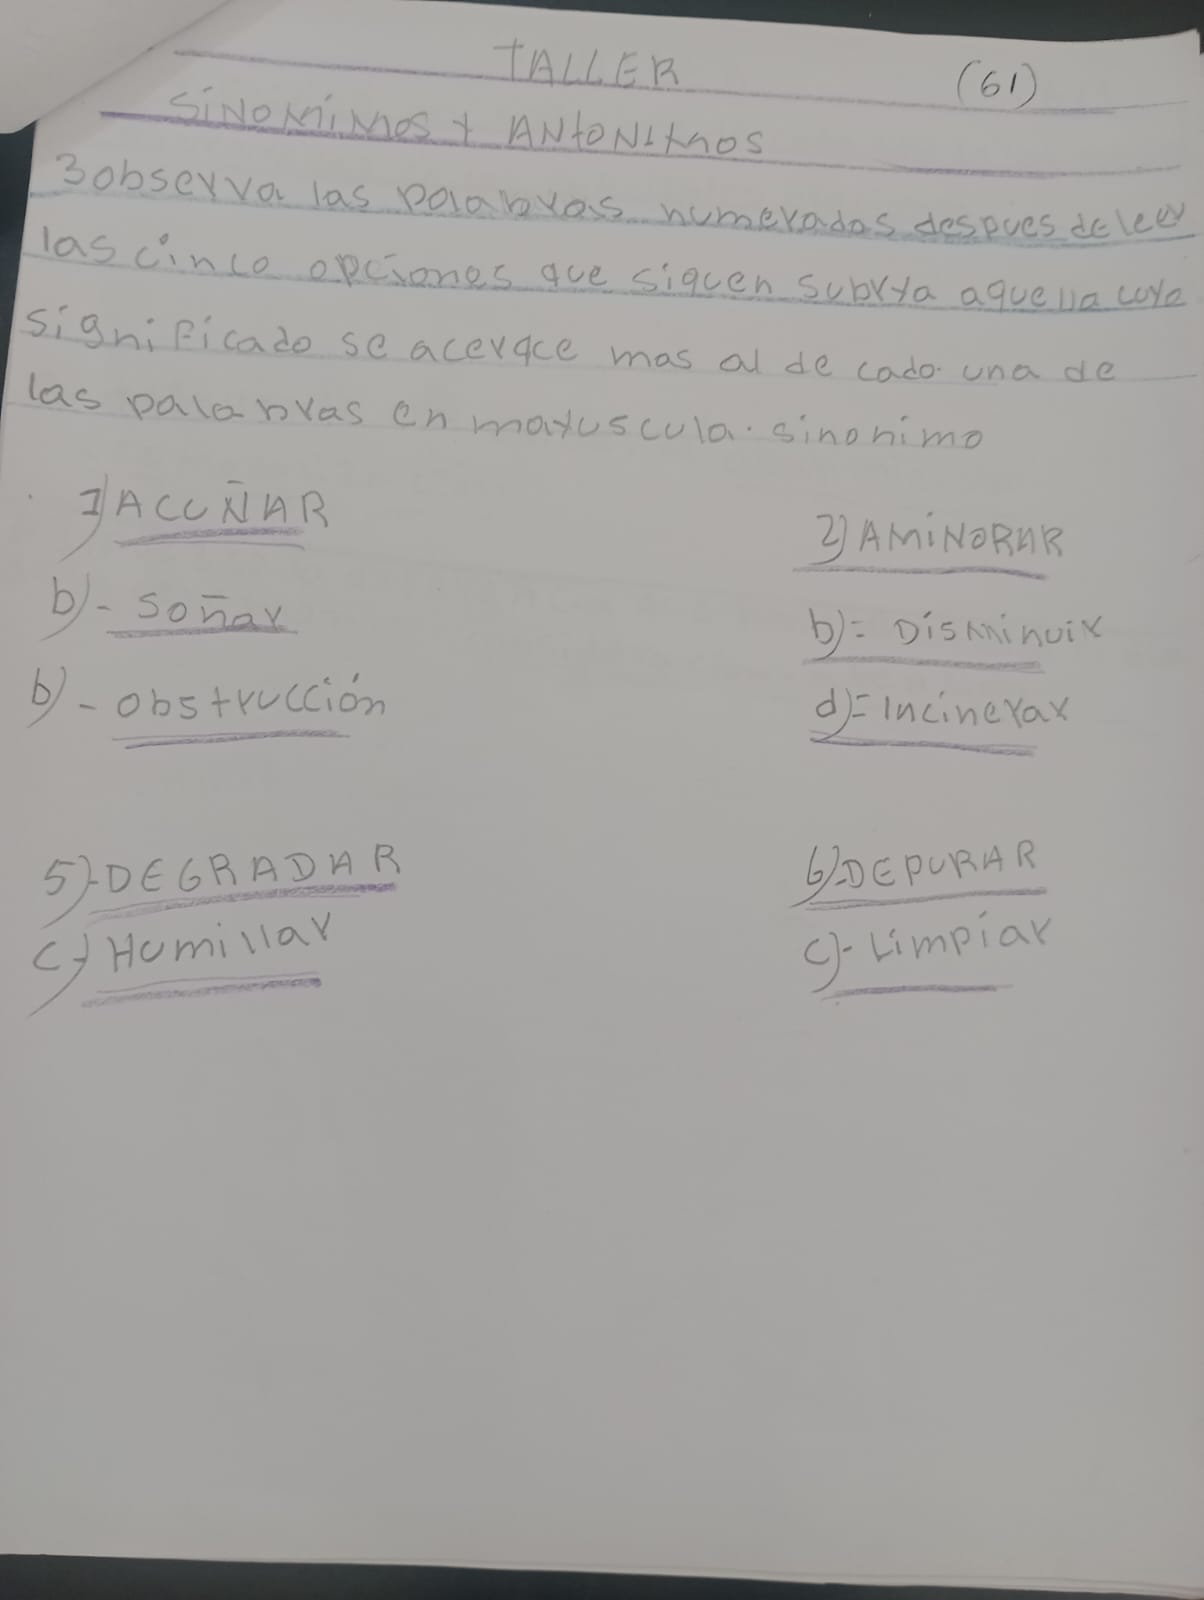 TALLER (61)
SiNOMiMOS Y ANtONIMOS
3 observa las palabras numeradas despues de leer
las cinco opciones que siguen subrya aquella cuya
significado se acerqce mas al de cada una de
las palabras en mayuscula. sinonimo
1) ACCUÑAR
2) AMiNORAR
b)- soñar
b)= Disminuir
b)- obstrucción
d)= Incinerar
5)-DEGRADAR
6)-DEPURAR
c)- Humillar
c)- Limpíar